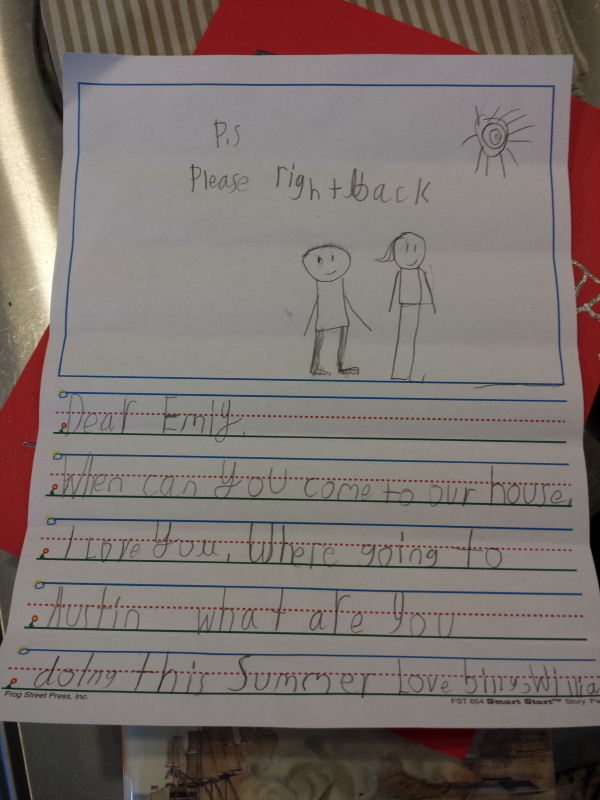 P.S
Please right back
Dear Emly,
When can you come to our house.
I Love You. Where going to
Austin what are you
doing this Summer Love
Frog Street Press, Inc.
FST 654 Smart Start™ Story